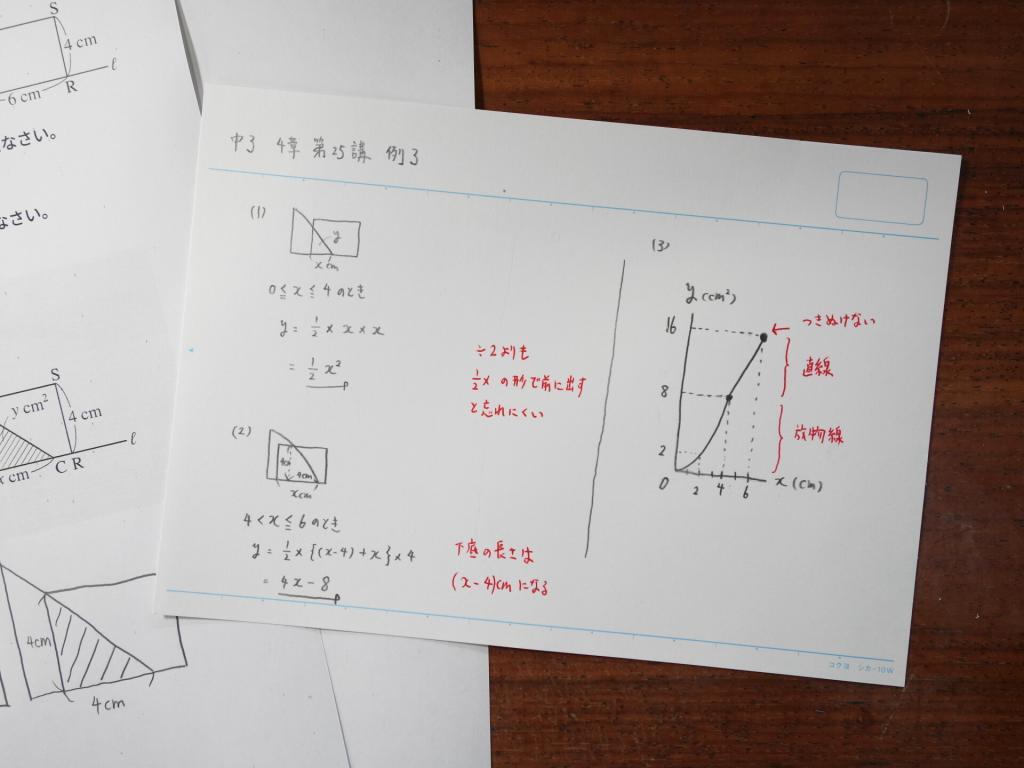 S
4 cm
ℓ
6 cm
R
なさい。
なさい。
S
y cm²
4 cm
ℓ
x cm
C R
4cm
4cm
中3 4章 第25講 例3
(1)
y
x cm
0≦x≦4のとき
y = 1/2 × x × x
= 1/2 x²
÷2よりも
1/2× の形で前に出す
と忘れにくい
(2)
4cm
4cm
xcm
4<x≦6のとき
y = 1/2 × {(x-4)+x} × 4
= 4x-8
下底の長さは
(x-4)cmになる
(3)
y (cm²)
16
つきぬけない
直線
8
放物線
2
0
2 4 6
x (cm)
コクヨ シカ-10W